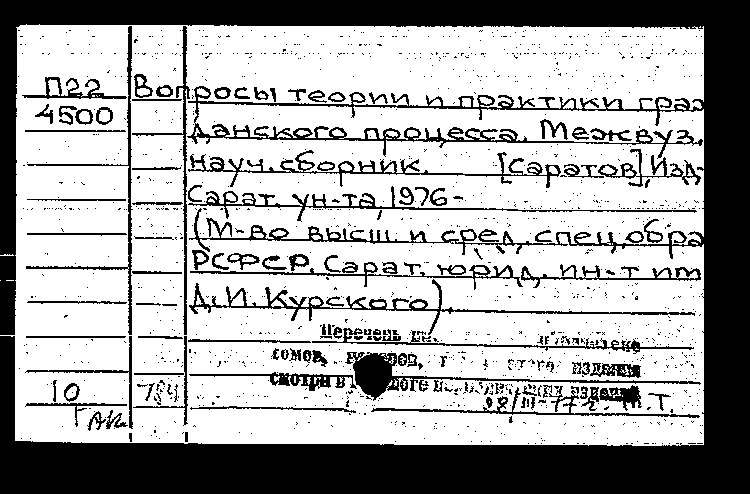 П22 Вопросы теории и практики граж
4500 данского процесса. Межвуз.
науч. сборник. [Саратов], Изд-
Сарат. ун-та, 1976-
(М-во высш. и сред. спец. обра
РСФСР. Сарат. юрид. ин-т им
Д. И. Курского).
Перечень
сомов, этого издания
смотри в изданий
10 784